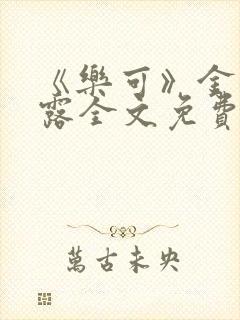 《樂可》金
露全文免費
萬古未央